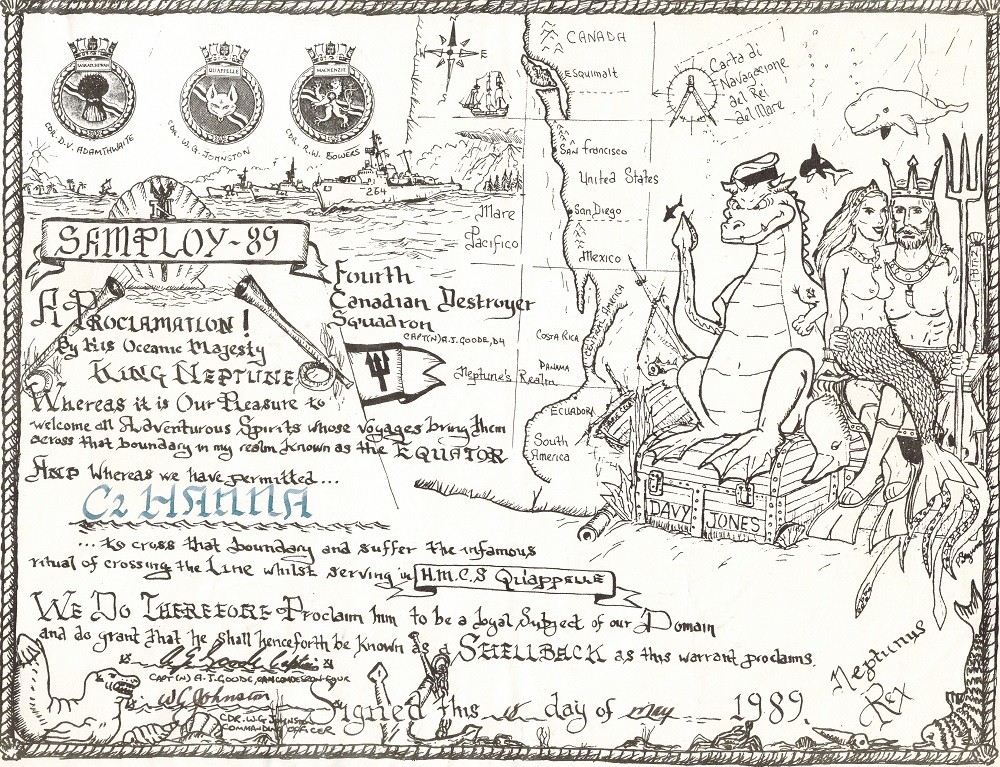 SASKATCHEWAN
QU'APPELLE
MACKENZIE
CDR. D.V. ADAMTHWAITE
CDR. W.G. JOHNSTON
CDR. R.W. BOWERS
264
N
W E
CANADA
ESQUIMALT
San Francisco
United States
San Diego
Mexico
Mare
Pacifico
Central America
COSTA RICA
PANAMA
Neptune's Realm
ECUADOR
South
America
Carta di
Navagacione
del Rei
del Mare
IN
SAMPLOY-89
Fourth
Canadian Destroyer
Squadron
CAPT(N) A.J. GOODE, D4
A Proclamation!
By His Oceanic Majesty
KING NEPTUNE
Whereas it is Our Pleasure to
welcome all Adventurous Spirits whose voyages bring them
across that boundary in my realm known as the EQUATOR
And whereas we have permitted...
C2 HANNA
...to cross that boundary and suffer the infamous
ritual of crossing the Line whilst serving in H.M.C.S Qu'appelle
We Do Therefore Proclaim him to be a loyal Subject of our Domain
and do grant that he shall henceforth be known as a SHELLBACK as this warrant proclaims.
CAPT(N) A.J. GOODE,
WG Johnston
CDR. W.G JOHNSTON
COMMANDING OFFICER
Signed this day of may 1989
DAVY JONES
Neptunus
Rex